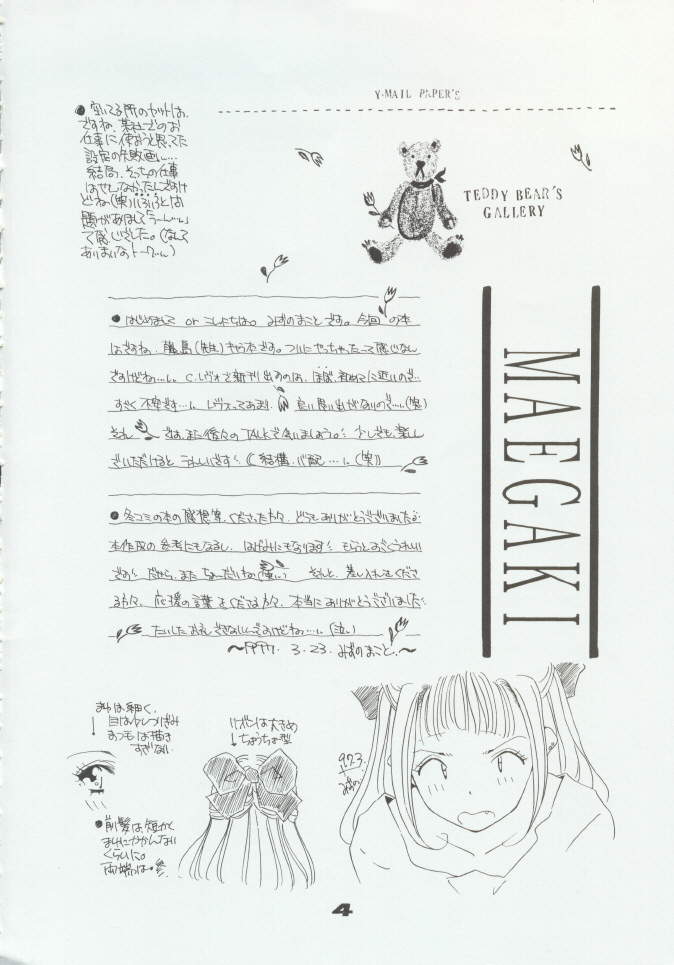 Y-MAIL PAPER'S
● 空いてる所のカットは、
ですね、某社でのお
仕事に使おうと思ってた
設定の失敗画…
結局、そっちの仕事
はせんなかったんですけ
どね(笑)
て感じでした。(なんて
あいまいなトーク…)
TEDDY BEAR'S
GALLERY
● はじめまして or こんにちは。みずのまことです。今回の本
はですね、
ですけどね…。C.レヴォで新刊出すのは、ほぼ初めてに近いので…
すごく不安です…。レヴォってあまり良い思い出がないので…(鬼)
では、また後々のTALKで会いましょう。少しでも楽しん
でいただけると うれしいです (結構、心配…。(笑))
● 冬コミの本の感想等、くださった方々、どうもありがとうございました
本作りの参考にもなるし、はげみにもなります もらうとすごくうれしい
です だから、また ちょーだいね 差し入れをくださ
る方々、応援の言葉をくださる方々、本当にありがとうございました
たいしたお礼できないんですけどね…。(泣)
〜1997. 3. 23. みずのまこと.〜
MAEGAKI
まゆは細く、
目は
まつ毛は描き
すぎない
リボンは大きめ
ちょうちょ型
● 前髪は短かく
まゆにかかんない
くらいに。
両端は
4